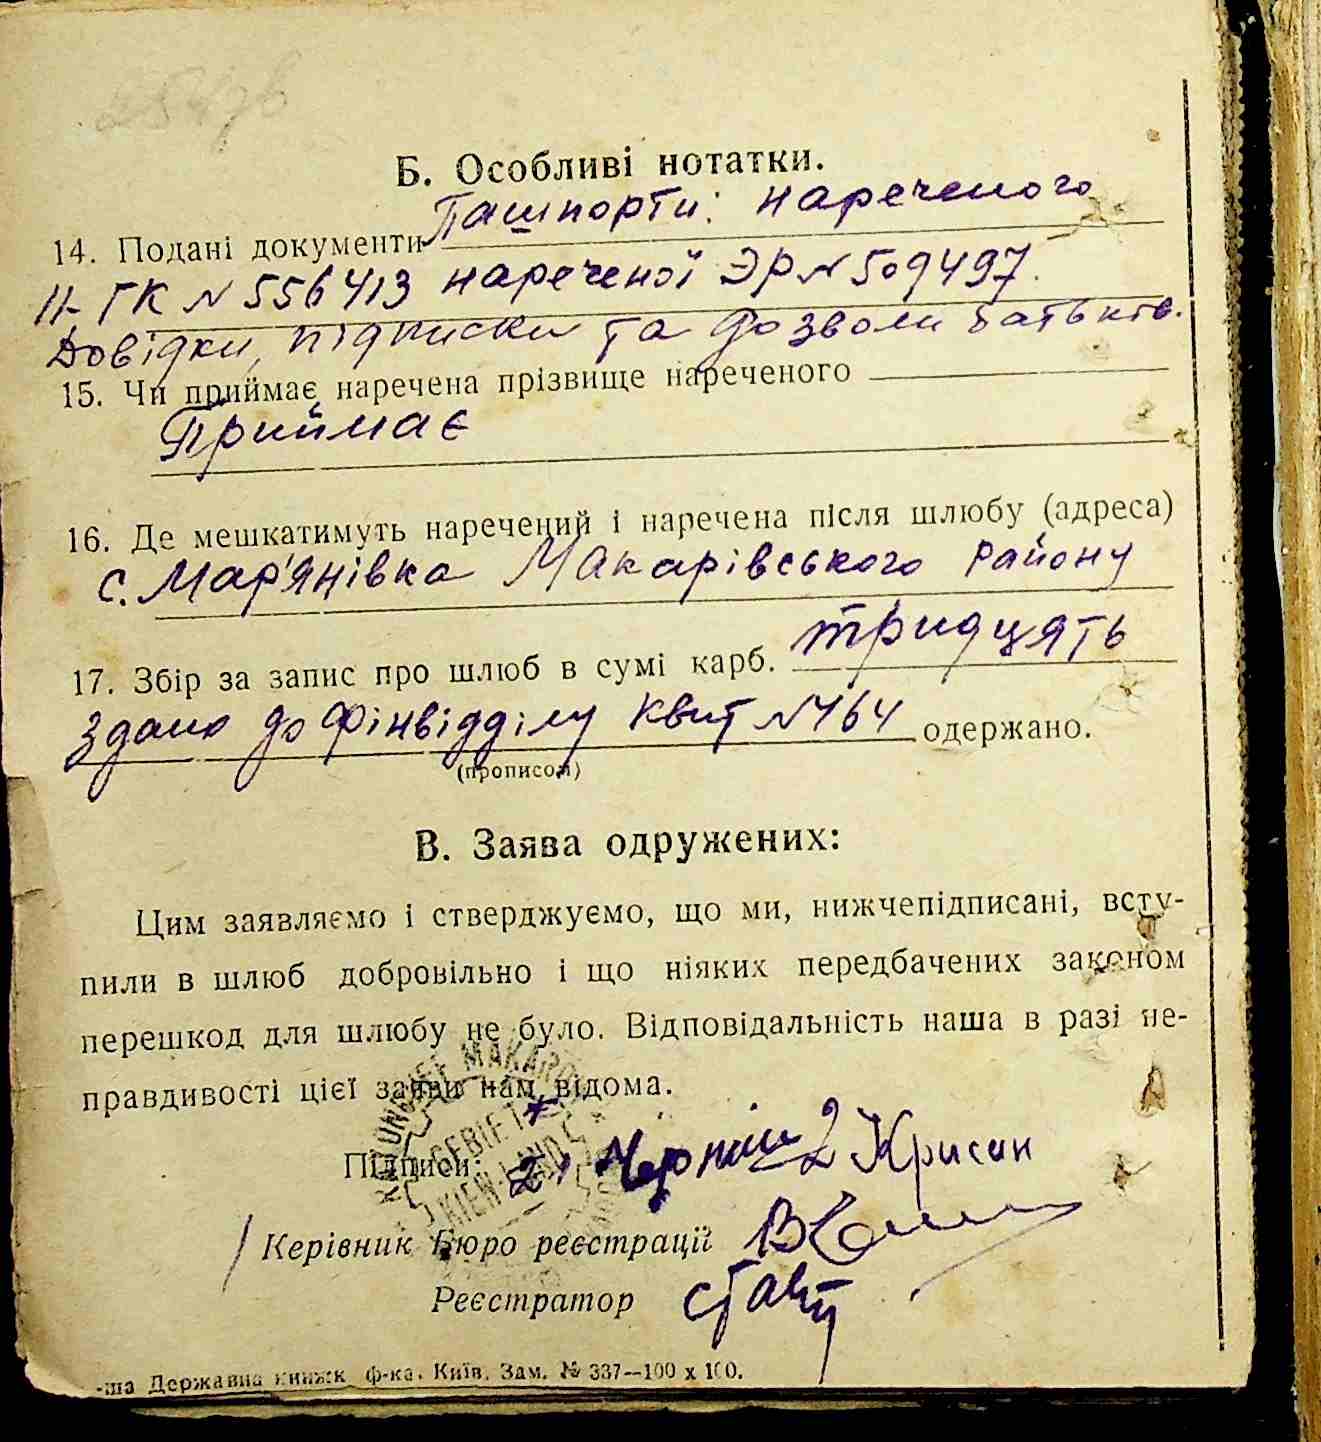 Б. Особливі нотатки.
14. Подані документи Пашпорти: нареченого
ІІ-ГК № 556413 нареченої ЭР № 509497.
Довідки, підписки та дозволи батьків.
15. Чи приймає наречена прізвище нареченого
Приймає
16. Де мешкатимуть наречений і наречена після шлюбу (адреса)
с. Мар'янівка Макарівського району
17. Збір за запис про шлюб в сумі карб. тридцять
здано до Фінвідділу квит №
одержано.
(прописом)
В. Заява одружених:
Цим заявляємо і стверджуємо, що ми, нижчепідписані, всту-
пили в шлюб добровільно і що ніяких передбачених законом
перешкод для шлюбу не було. Відповідальність наша в разі не-
правдивості цієї заяви нам відома.
GEBIET
KIEW-LAND
Підписи: 2 Крисан
Керівник Бюро реєстрації
Реєстратор
-ша Державна книжк. ф-ка. Київ. Зам. № 337—100 х 100.